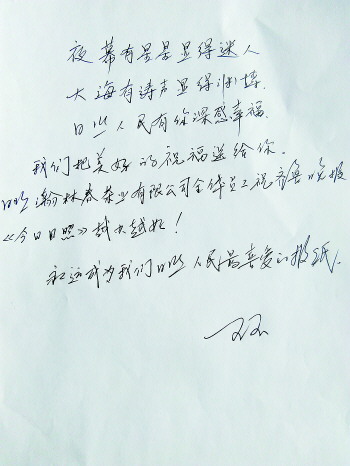 夜幕有星星显得迷人
大海有涛声显得渊博.
日照人民有你深感幸福.
我们把美好的祝福送给你。
日照瀚林春茶业有限公司全体员工祝齐鲁晚报
《今日日照》越办越好！
永远成为我们日照人民最喜爱的报纸.